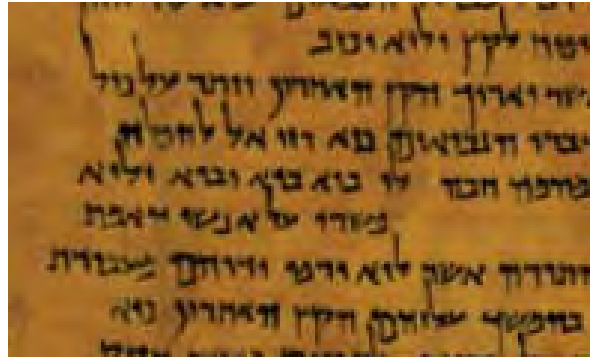 יפיח לקץ ולוא יכזב
אשר יארוך הקץ האחרון ויתר על כול
דברו הנביאים כיא רזי אל להפלה
חכה לו כיא בוא יבוא ולוא
פשרו על אנשי האמת
התורה אשר לוא ירפו ידיהם מעבודת
בהמשך עליהם הקץ האחרון כיא